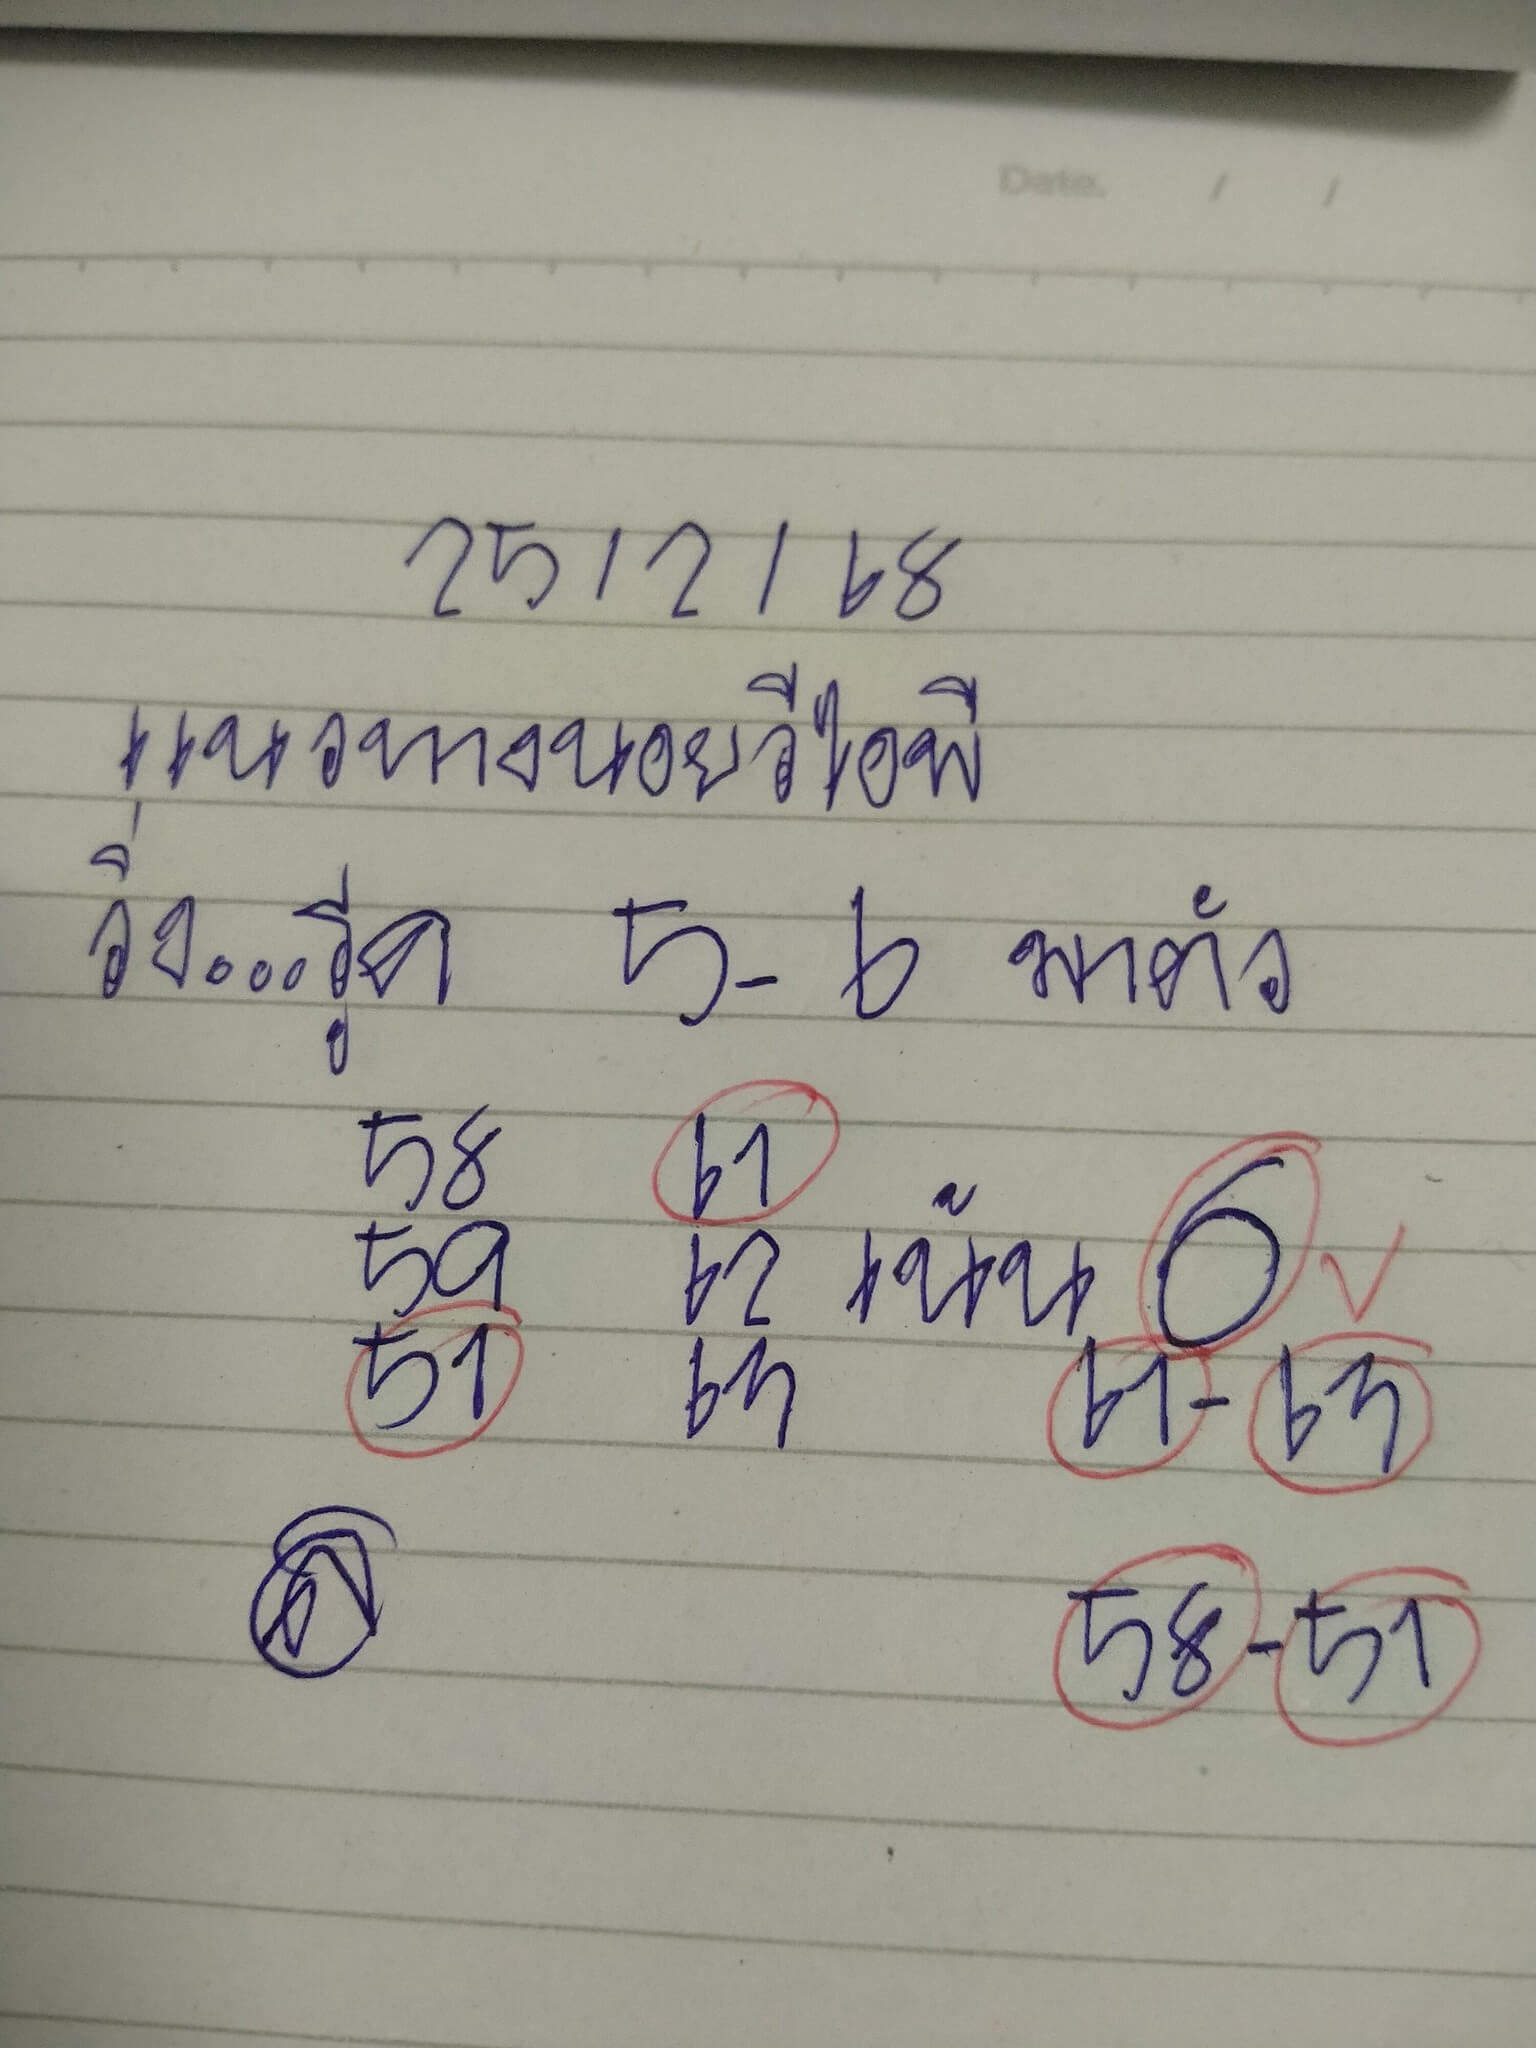 Date. / /
25/2/68
แนวทางนอยวีไอพี
วิ่ง...รูด 5-6 มาตัว
58 61
59 62 เน้น 6
51 63 61-63
58-51